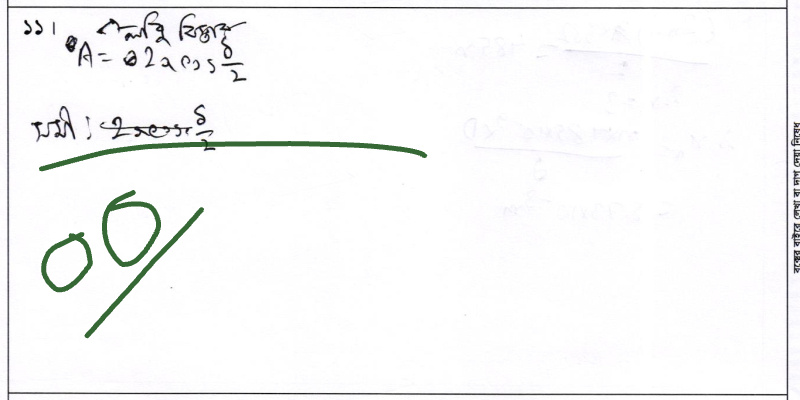 ১১। লব্ধি বিস্তার
A = 2a cos δ/2
δ/2
০০/
বক্সের বাইরে লেখা বা দাগ দেয়া নিষেধ